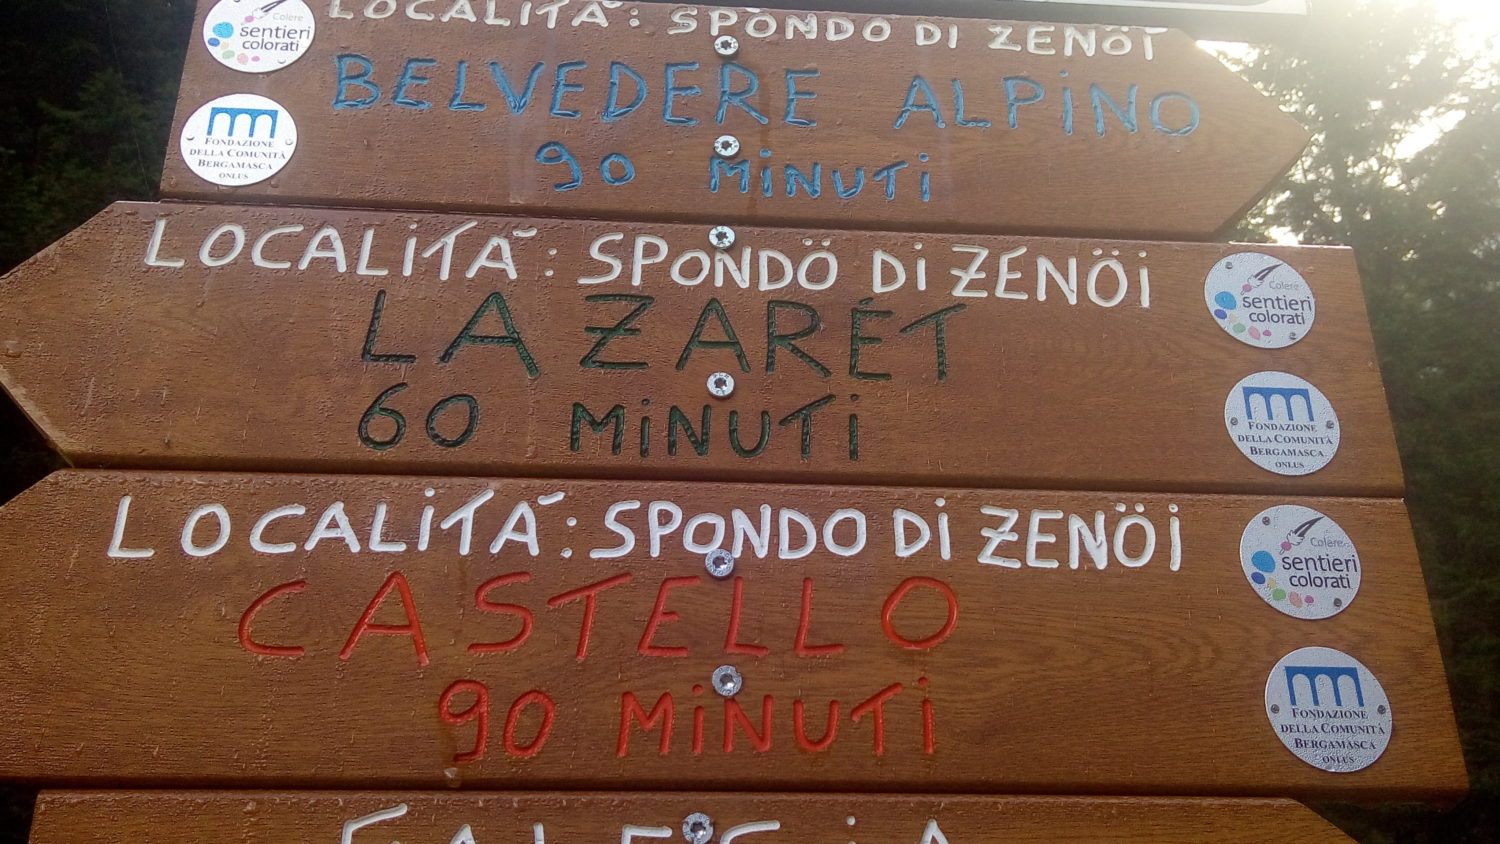 LOCALITÀ: SPONDO DI ZENÖI
BELVEDERE ALPiNO
90 MiNUTi
Colere
sentieri
colorati
FONDAZIONE
DELLA COMUNITÀ
BERGAMASCA
ONLUS
LOCALiTÀ: SPONDÖ Di ZENÖi
LAZARÉT
60 MiNUTi
Colere
sentieri
colorati
FONDAZIONE
DELLA COMUNITÀ
BERGAMASCA
ONLUS
LOCALiTÀ: SPONDO Di ZENÖi
CASTELLO
90 MiNUTi
Colere
sentieri
colorati
FONDAZIONE
DELLA COMUNITÀ
BERGAMASCA
ONLUS